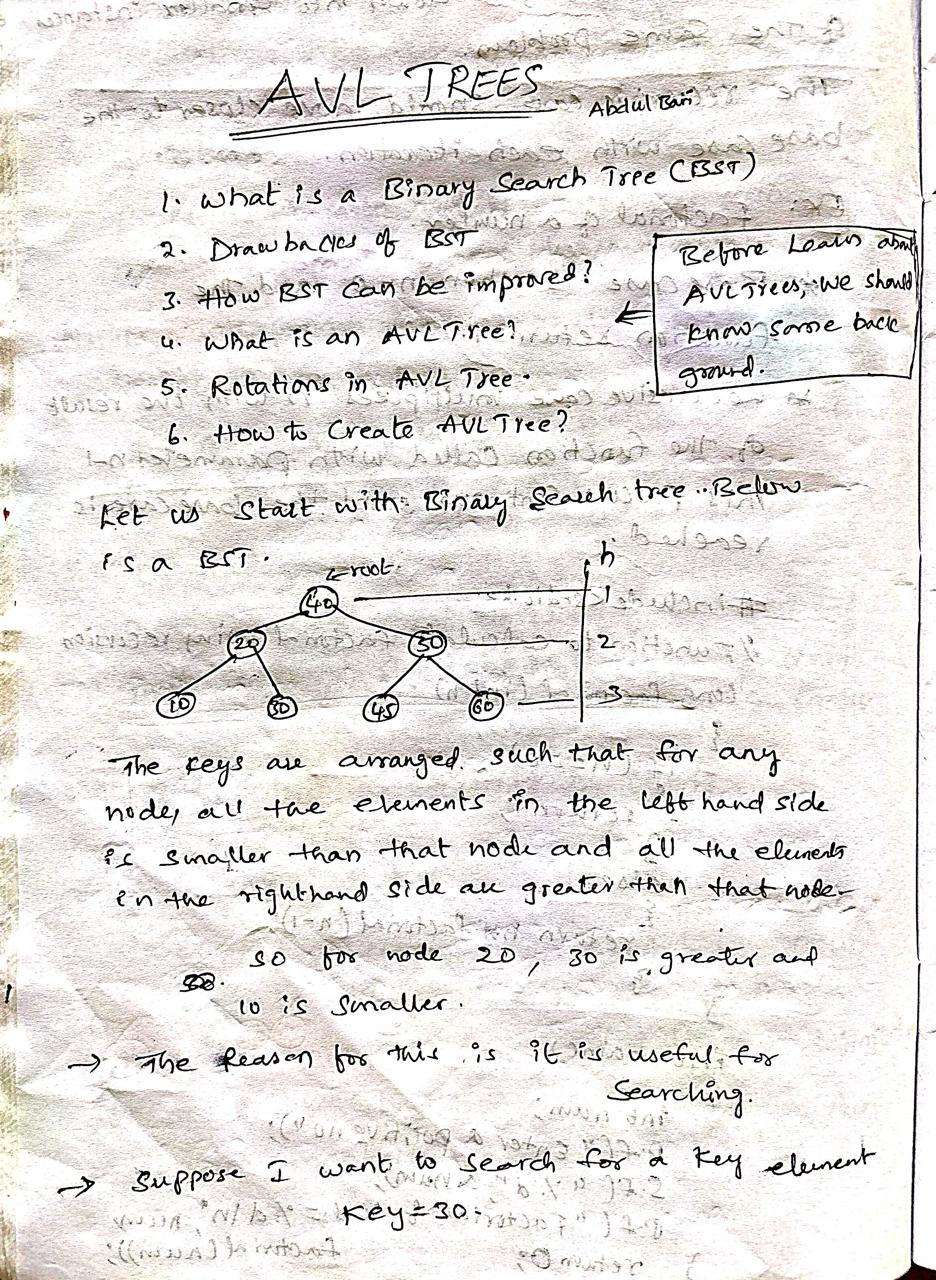 AVL TREES
Abdul Bari
1. What is a Binary Search Tree (BST)
2. Drawbacks of BST
3. How BST can be improved?
4. What is an AVL Tree?
5. Rotations in AVL Tree.
6. How to Create AVL Tree?
Before Learn about
AVL Trees, we should
know some back
ground.
Let us Start with Binary Search tree.. Below
is a BST.
←root.
h
40
1
20
50
2
10
30
45
60
3
The keys are arranged such that for any
node, all the elements in the left hand side
is smaller than that node and all the elements
in the righthand side are greater than that node
So for node 20, 30 is greater and
10 is smaller.
→ The Reason for this is it is useful for
Searching.
→ Suppose I want to search for a key element
Key=30.